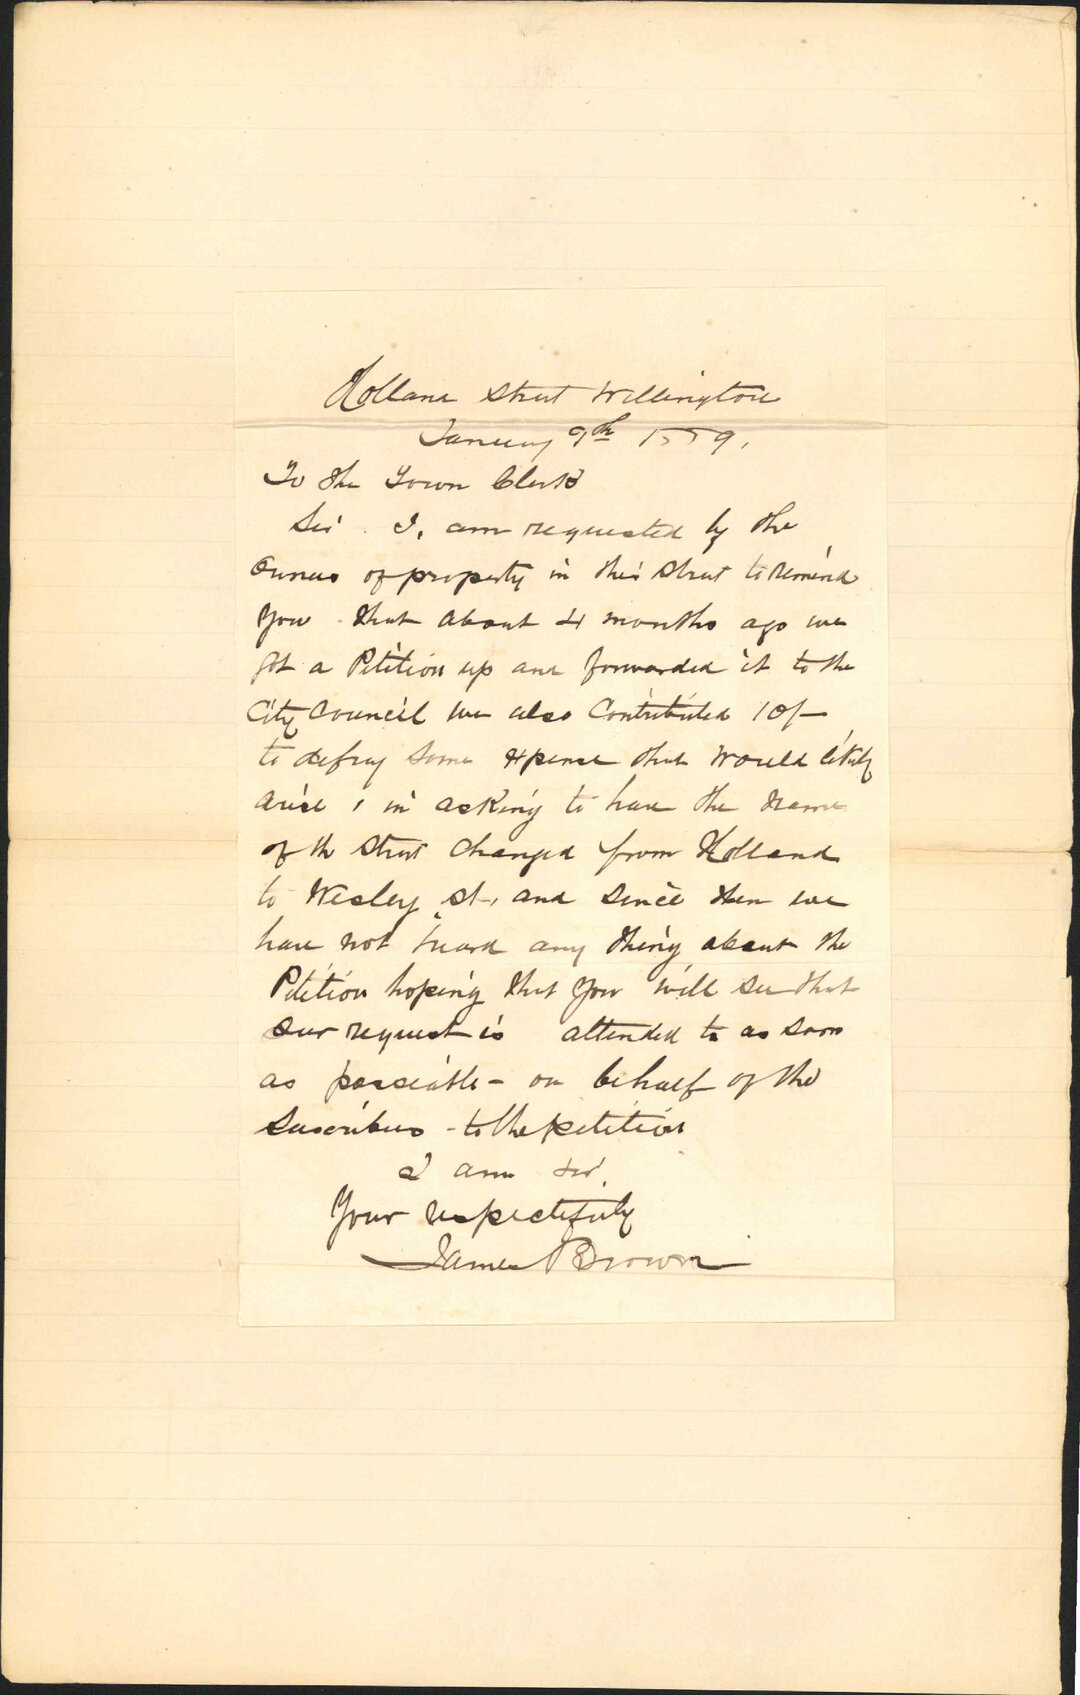 Holland Street Wellington
January 9th 1889.
To the Town Clerk
Sir I, am requested by the
owners of property in this Street to remind
you that about 4 months ago we
got a Petition up and forwarded it to the
City Council we also Contributed 10/-
to defray some expense that would likely
arise, in asking to have the name
of the Street Changed from Holland
to Wesley St, and since then we
have not heard any thing about the
Petition hoping that you will see that
our request is attended to as soon
as possiable - on behalf of the
suscribers - to the petition
I am Sir.
Your respectifuly
James Brown